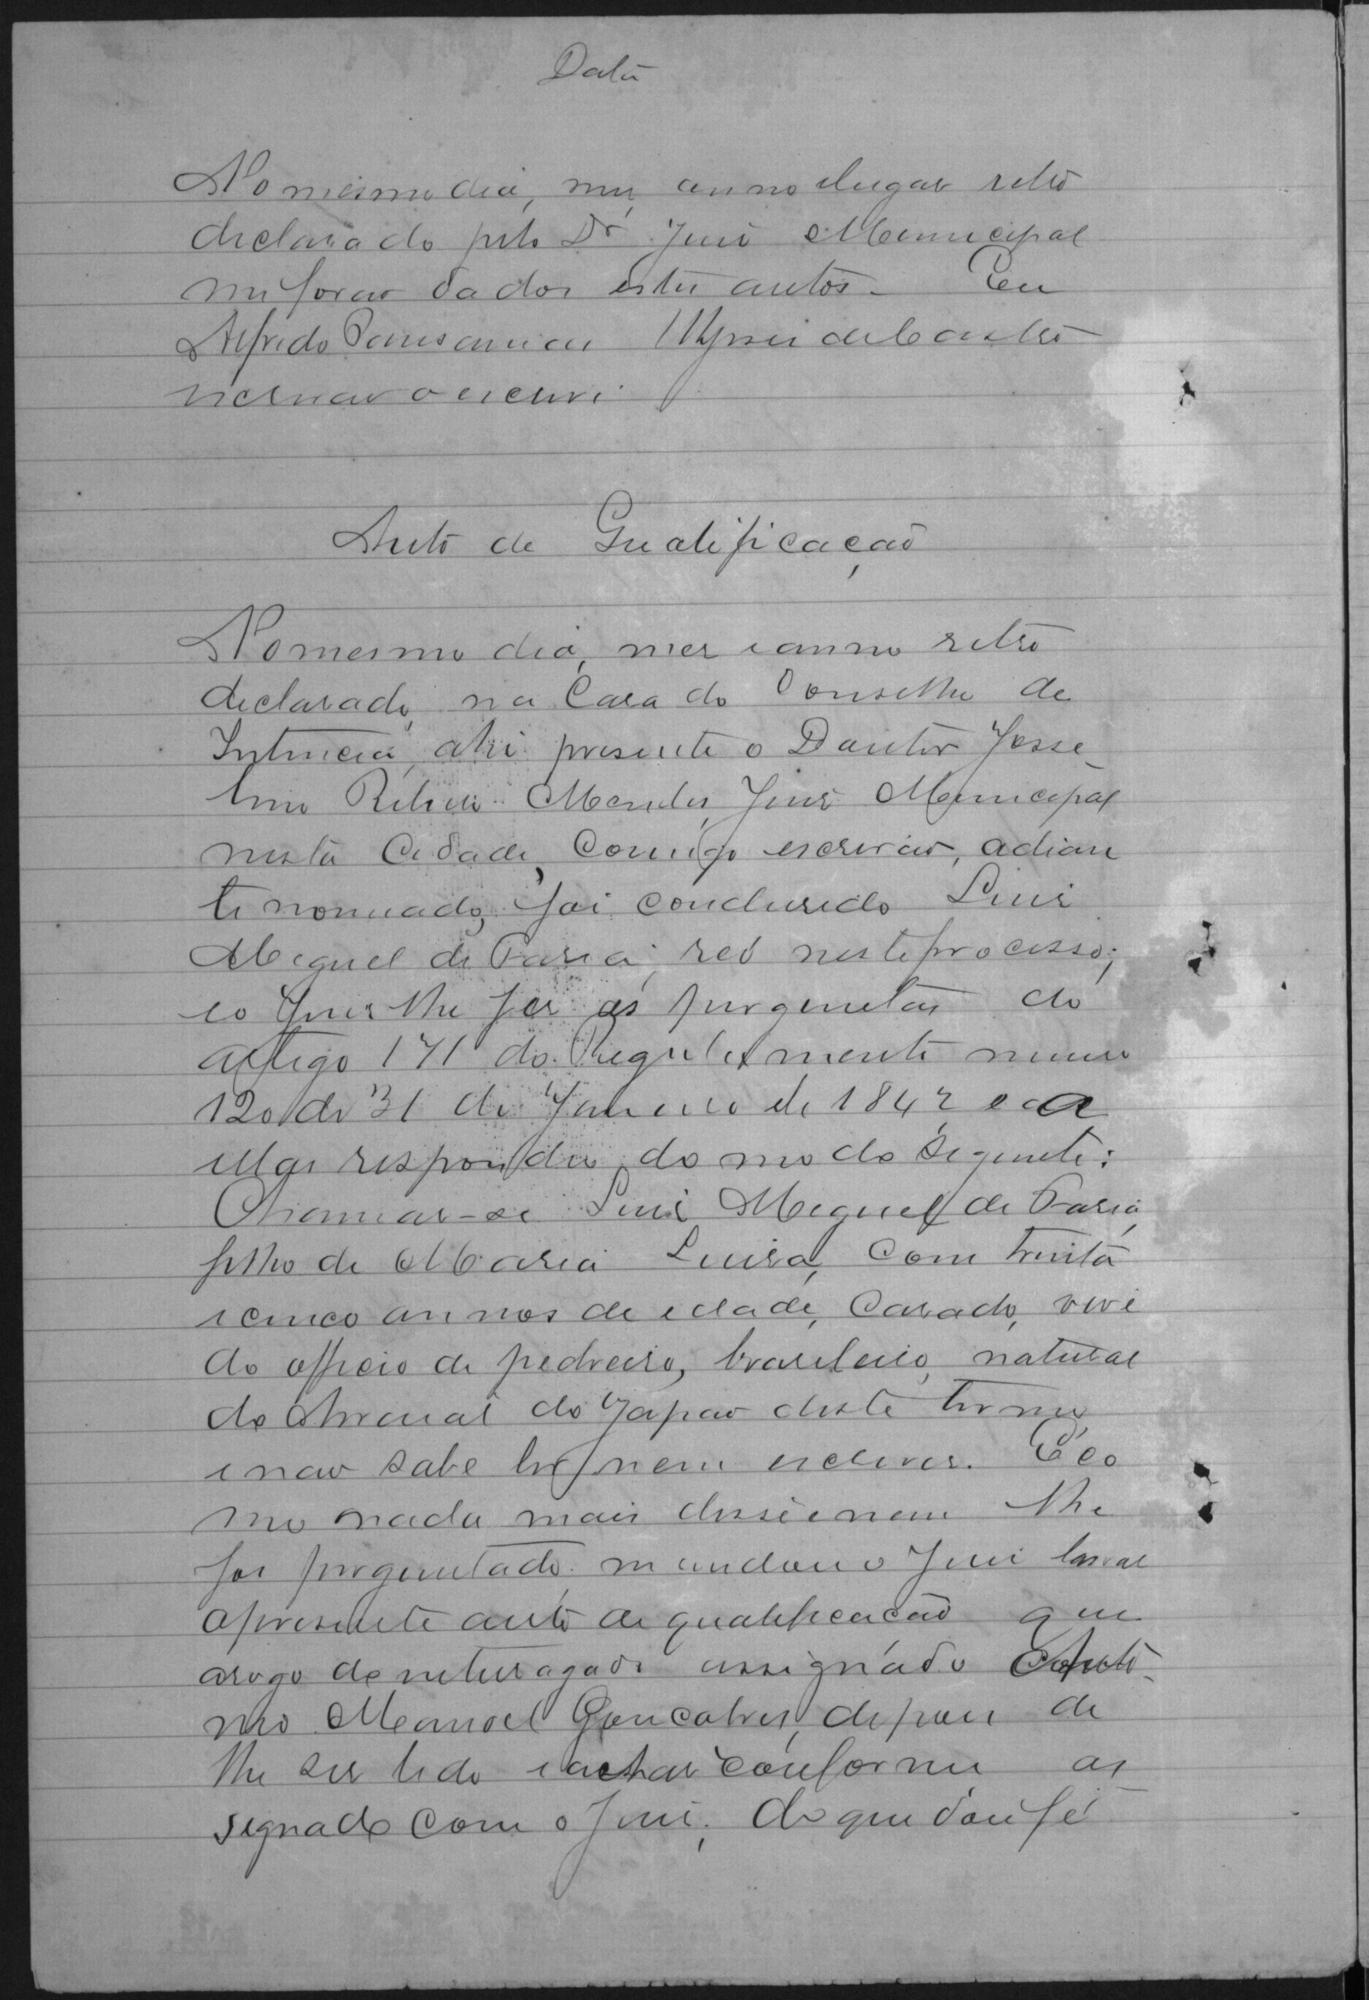 Data
No mesmo dia, mez, anno e lugar retro
declarado pelo Dr Juis Municipal
me forão dados estes autos. Eu
Alfredo Pausanias Ulysses de Castro
escrivão o escrevi
Auto de Qualificação
No mesmo dia, mez e anno retro
declarado, na Casa do Conselho de
Intencia, ahi presente o Doutor Josse_
lino Ribeiro Mendes Juis Municipal
nesta Cidade, comigo escrivão, adian
te nomeado, foi condusido Luis
Miguel de Faria, reo neste processo;
e o Juis lhe fes as perguntas do
artigo 171 do Regulamento numero
120 de 31 de Janeiro de 1842 e a
ellas respondeo do modo seguinte:
Chamar-se Luis Miguel de Faria,
filho de Maria Luisa, com trinta
e cinco annos de edade, casado, vive
do officio de pedreiro, brasileiro, natural
do Arraial do Japão deste termo,
e não sabe ler nem escrever. E co
mo nada mais disse e nem lhe
foi perguntado, mandou o Juis lavrar
o presente auto de qualificação que
arogo do enterrogado assignado Anto_
nio Manoel Gonçalves, depois de
lhe ser lido e achar conforme as
signado com o Juis; do que dou fé